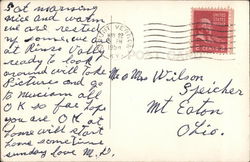 Sat morning
nice and warm
we are
some
at
ready to look
around will take
Pictures and go
to Museum all
OK so far hope
you are OK at
home will start
home sometime
Sunday love M.D.
1954
2 CENTS 2
Mr & Mrs Wilson
Speicher
Mt Eaton
Ohio.